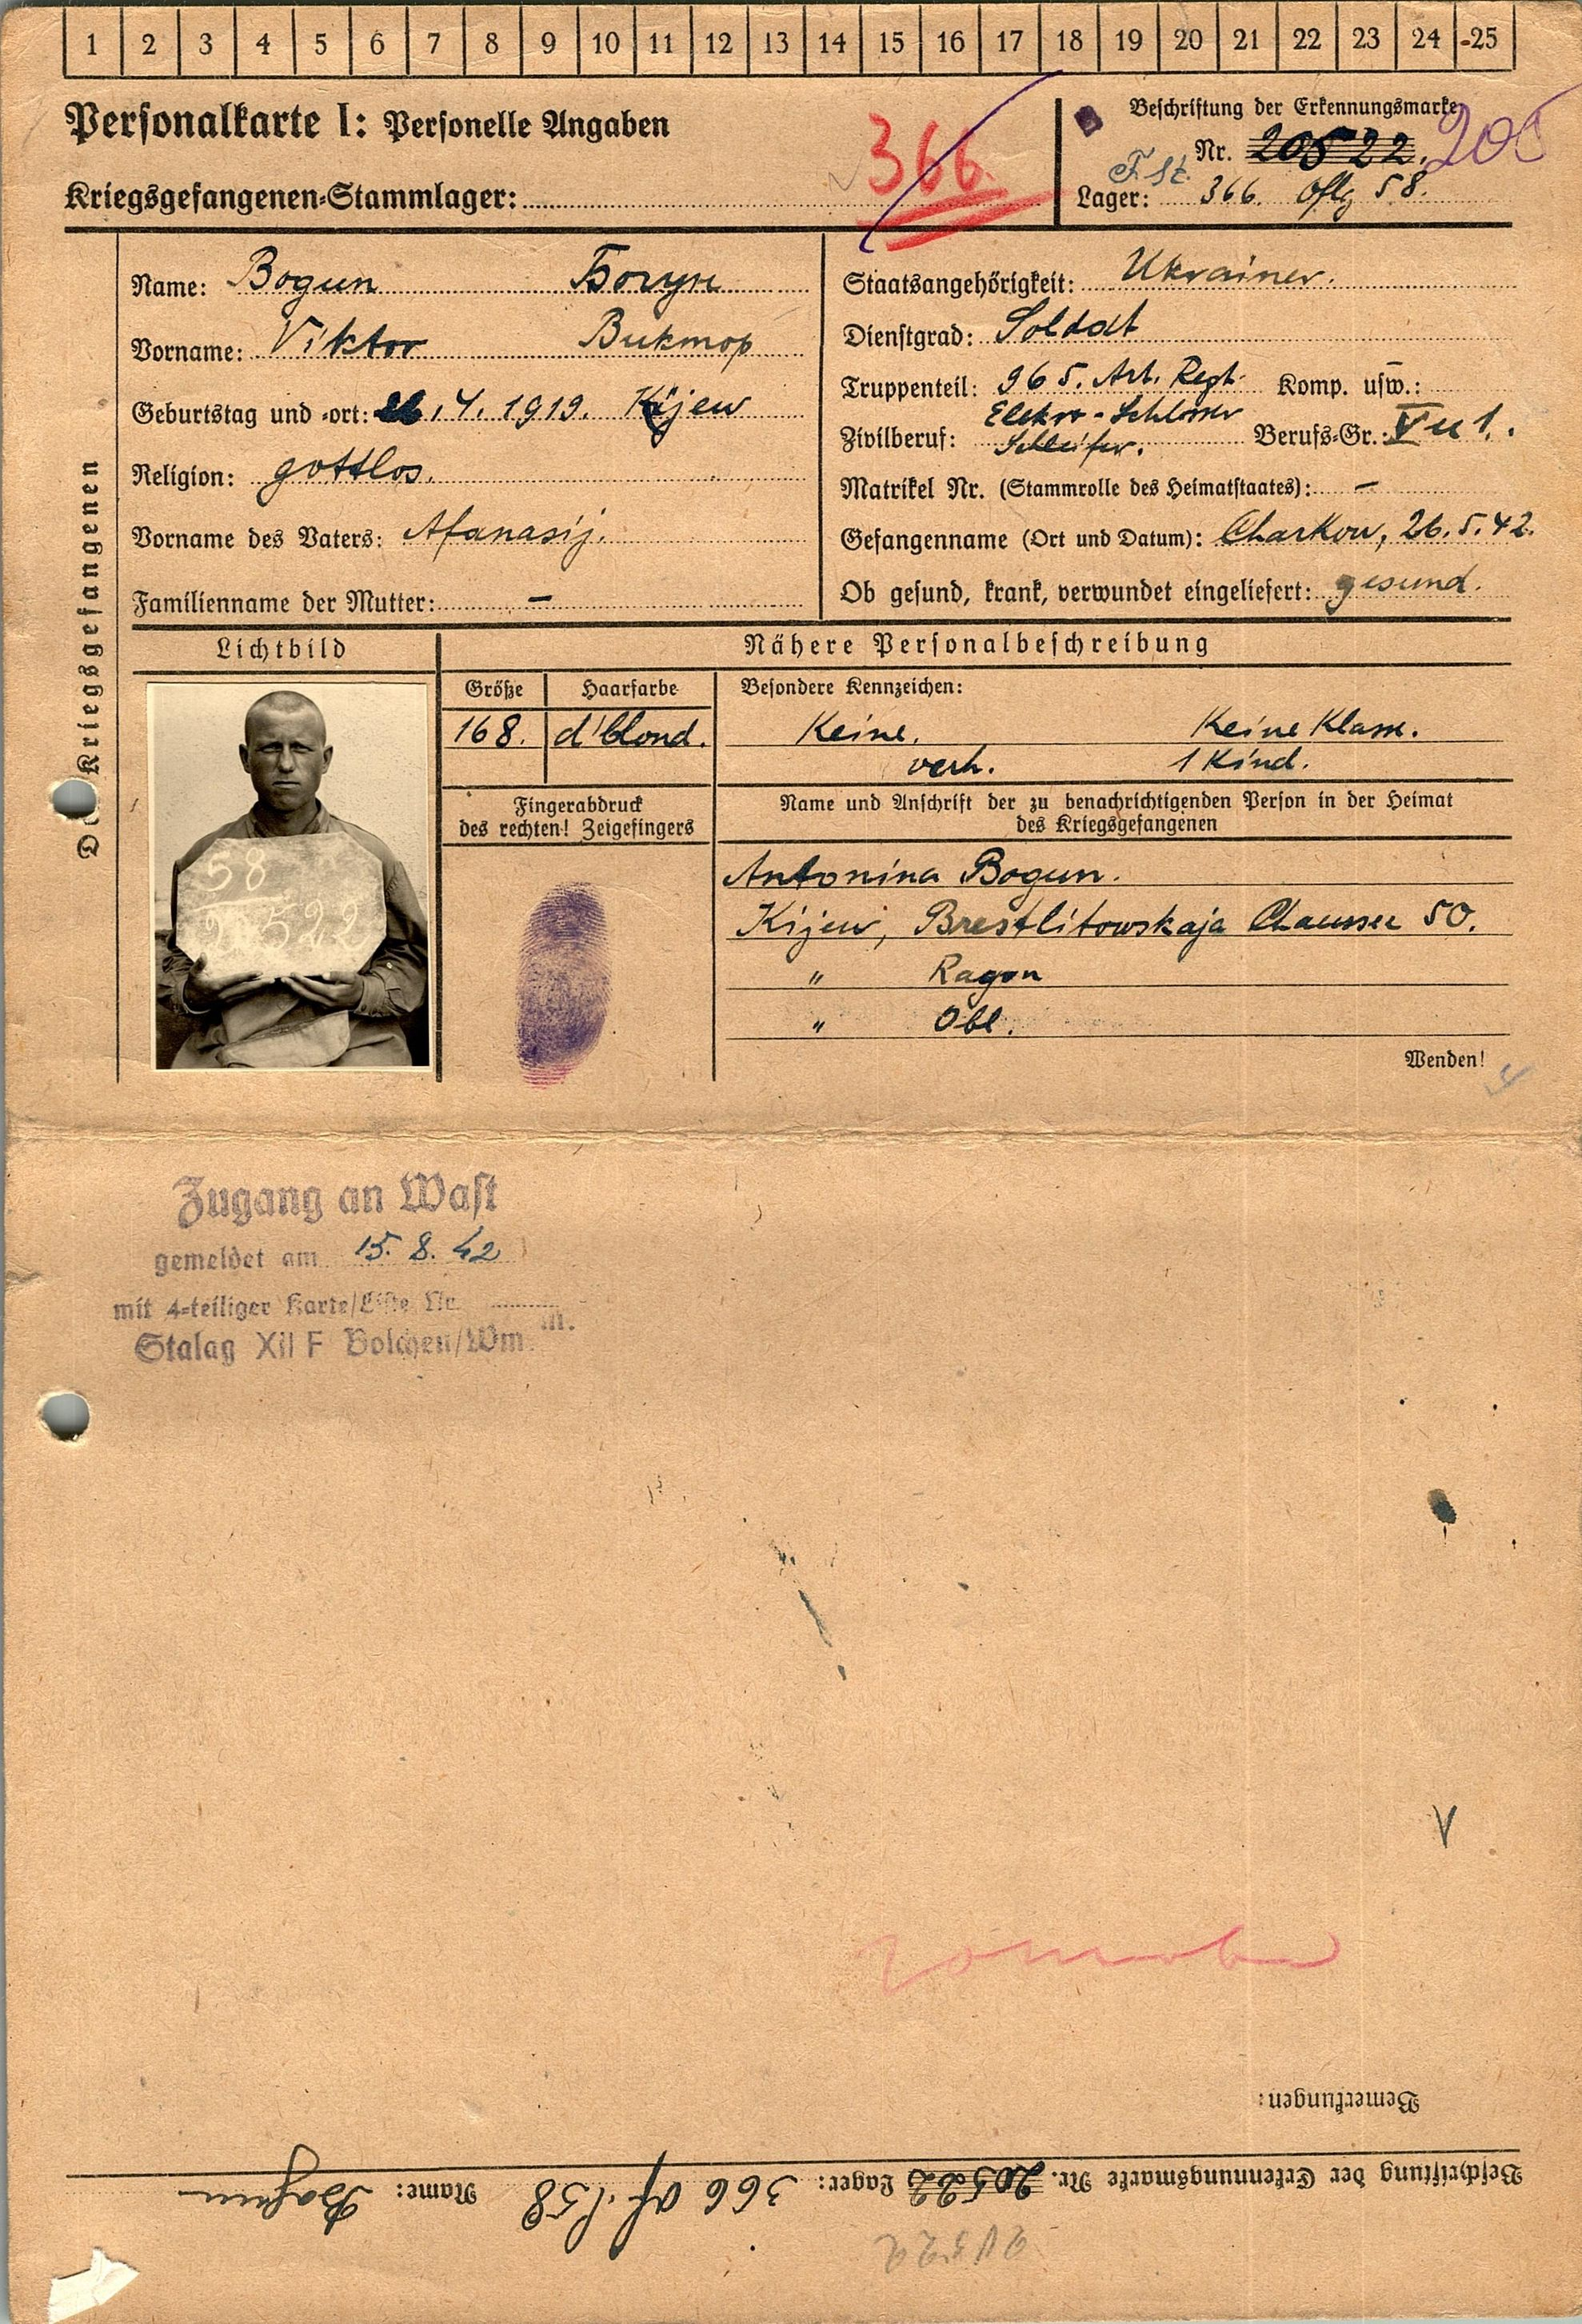 1 2 3 4 5 6 7 8 9 10 11 12 13 14 15 16 17 18 19 20 21 22 23 24 -25
Personalkarte I: Personelle Angaben
Kriegsgefangenen-Stammlager:
366
Beschriftung der Erkennungsmarke
Nr. 20522. 205
Lager: 366 Oflg 58.
Kriegsgefangenen
Name: Bogun Богун
Vorname: Viktor Виктор
Geburtstag und -ort: .4.1919. Kijew
Religion: gottlos.
Vorname des Vaters: Afanasij.
Familienname der Mutter: –
Staatsangehörigkeit: Ukrainer.
Dienstgrad: Soldat
Truppenteil: 965. Art. Regt. Komp. usw.:
Elektro-Schlosser
Zivilberuf: Schleifer. Berufs-Gr.: V u 1.
Matrikel Nr. (Stammrolle des Heimatstaates): –
Gefangenname (Ort und Datum): Charkow, 26.5.42.
Ob gesund, krank, verwundet eingeliefert: gesund.
Lichtbild
58
20522
Nähere Personalbeschreibung
Größe Haarfarbe
168. d'blond.
Besondere Kennzeichen:
Keine. Keine Klass.
verh. 1 Kind.
Fingerabdruck
des rechten! Zeigefingers
Name und Anschrift der zu benachrichtigenden Person in der Heimat
des Kriegsgefangenen
Antonina Bogun.
Kijew, Brestlitowskaja Chaussee 50.
" Ragon
" Obl.
Wenden!
Zugang an Wast
gemeldet am 15.8.42
mit 4-teiliger Karte/Liste Nr.
Stalag XII F Bolchen/Wm.
Bemerkungen:
Beschriftung der Erkennungsmarke Nr. 20522 Lager: 366 Of. 58 Name: Bogun